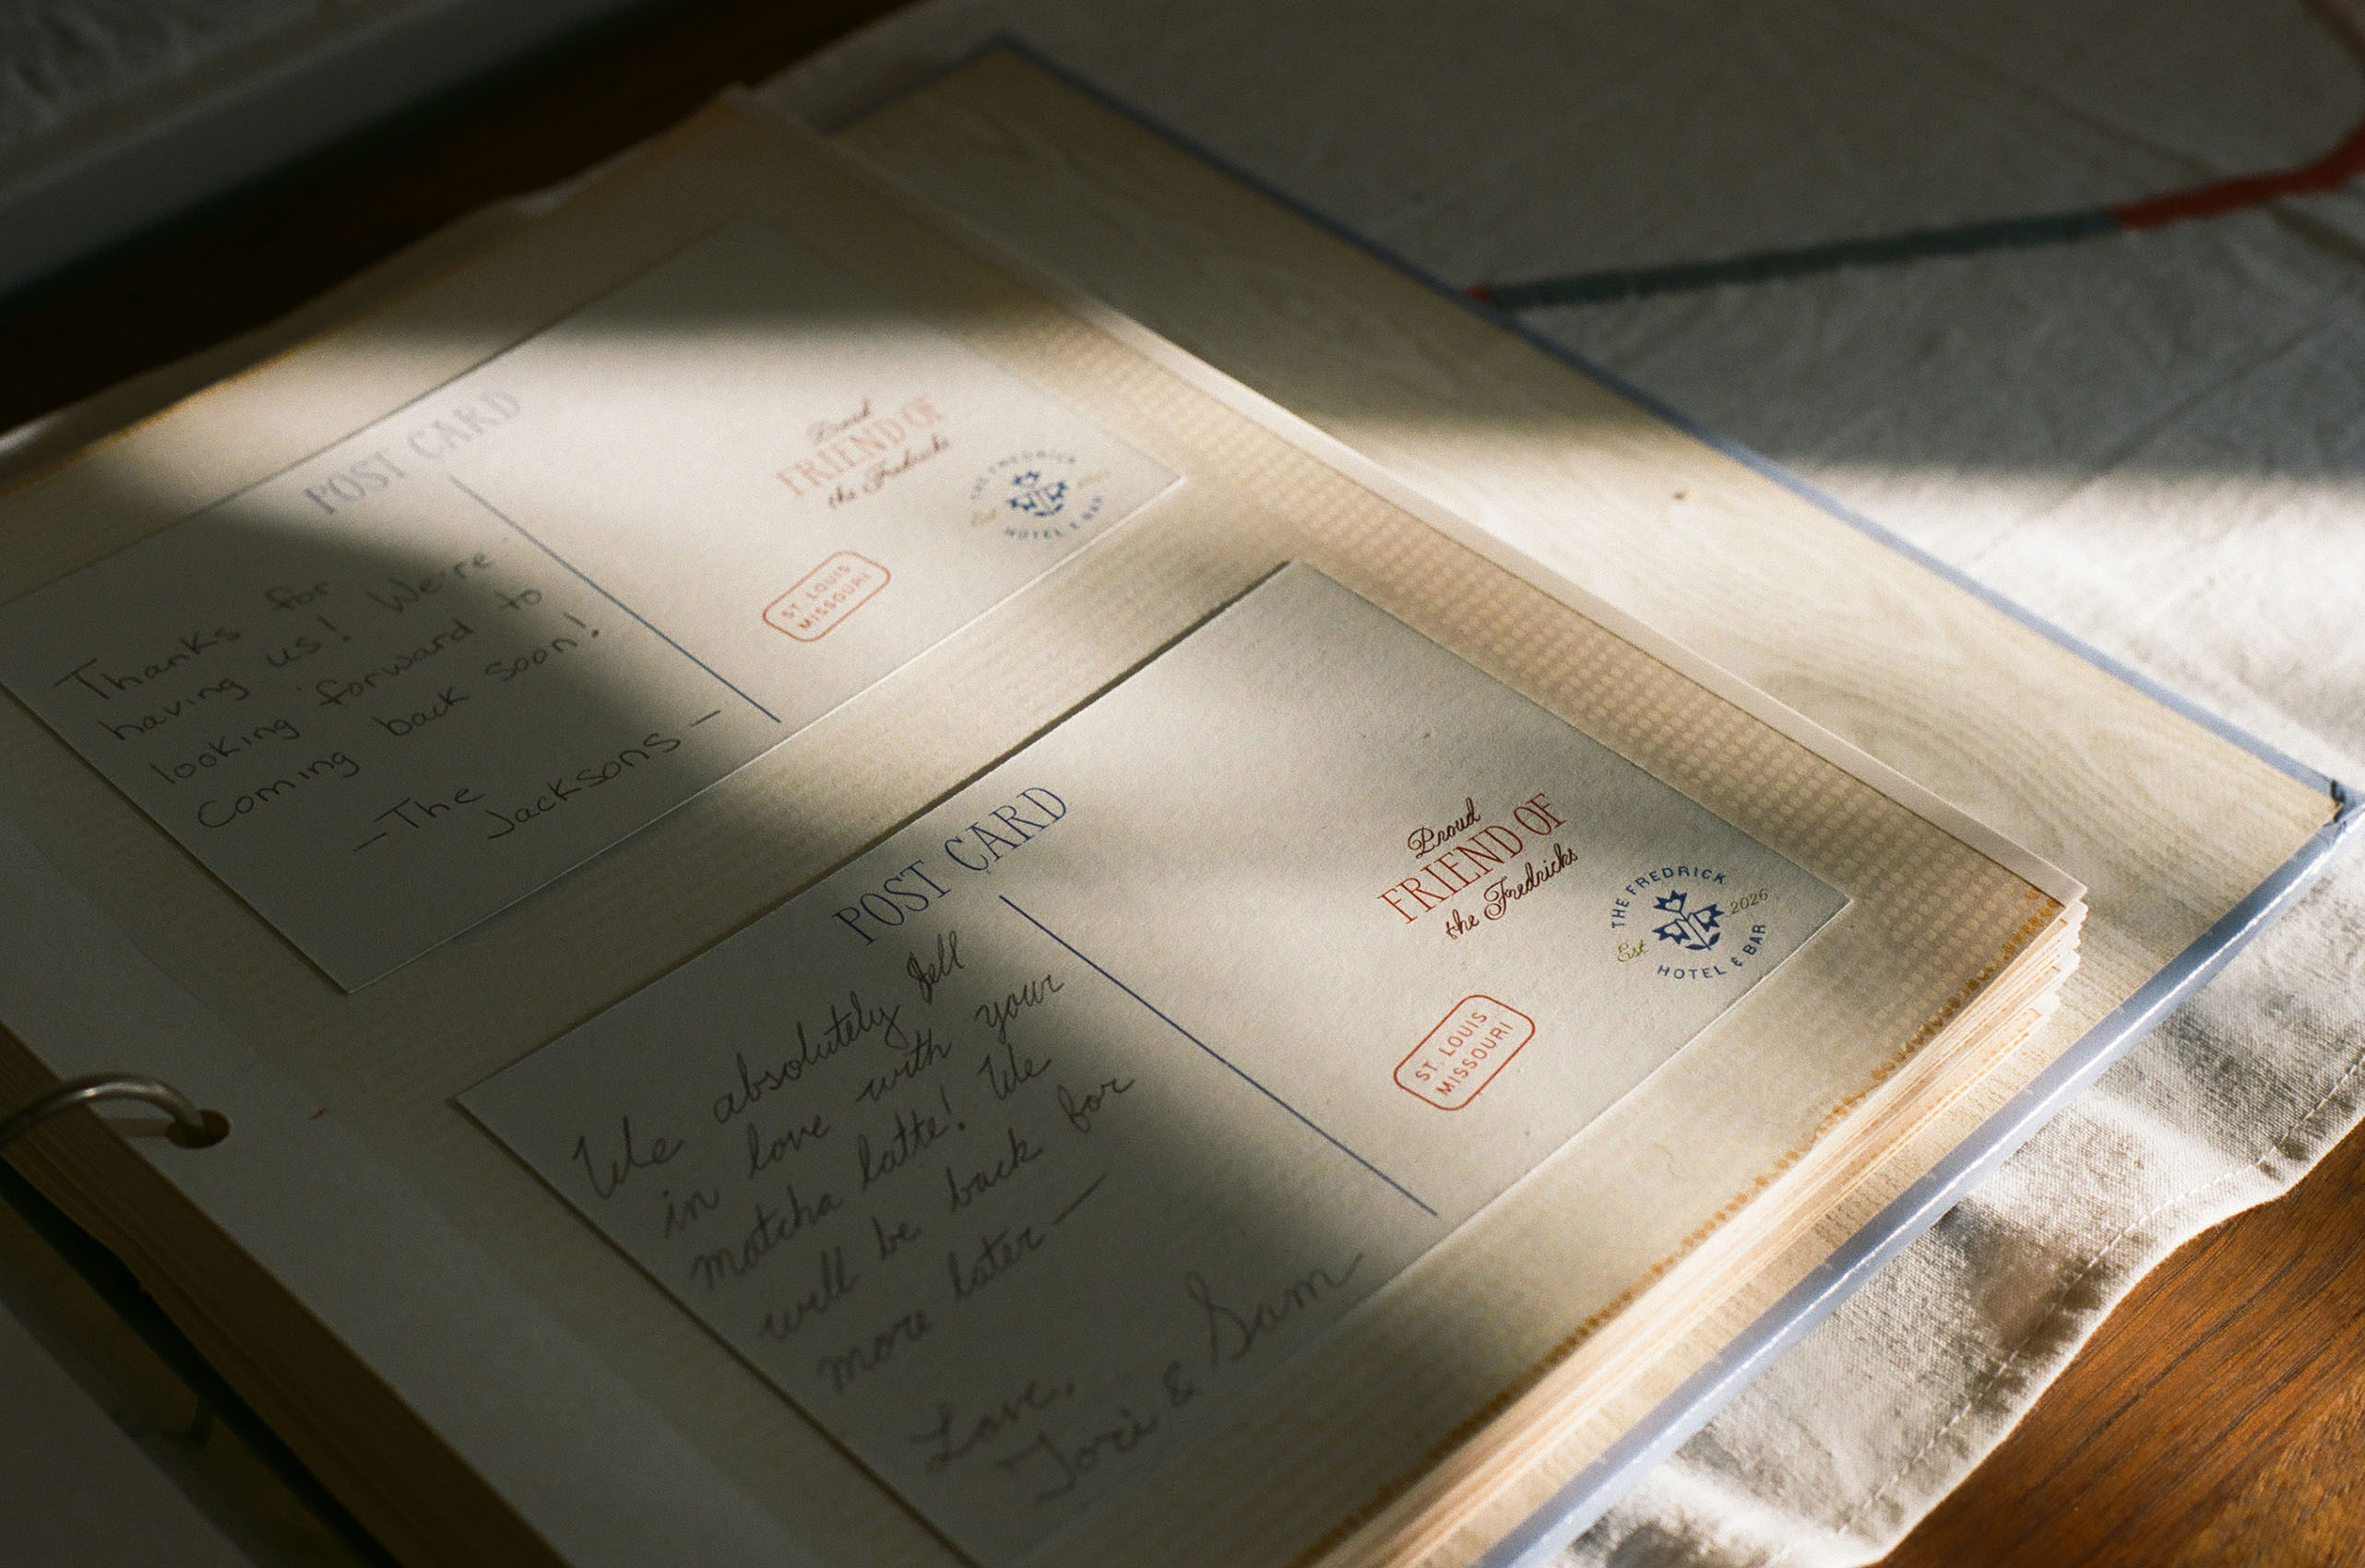 POST CARD
Thanks for
having us! We're
looking forward to
coming back soon!
—The
Jacksons—
Proud
FRIEND OF
the Fredricks
THE FREDRICK
Est
HOTEL & BAR
ST. LOUIS
MISSOURI
POST CARD
We absolutely fell
in love with your
matcha latte! We
will be back for
more later—
Love,
Tori & Sam
Proud
FRIEND OF
the Fredricks
THE FREDRICK
Est 2026
HOTEL & BAR
ST. LOUIS
MISSOURI